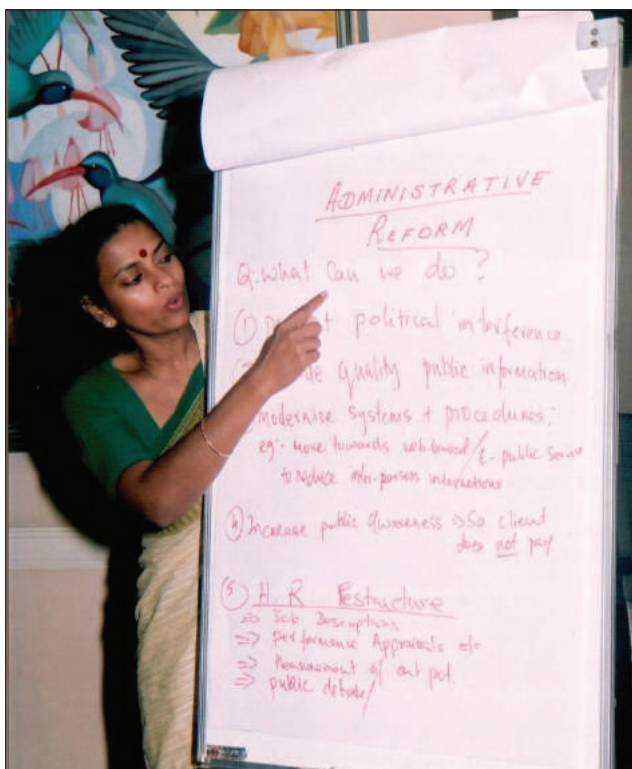 ADMINISTRATIVE
REFORM
Q: What Can we do?
① political interference
quality public information
modernise systems + procedures:
eg:- move towards web-based / E-public service
to reduce inter-person interactions
④ Increase public awareness ⇒ So client
does not pay
⑤ H.R Restructure
⇒ Job Descriptions
⇒ performance Appraisals etc
⇒ Measurement of out put
⇒ public debate/